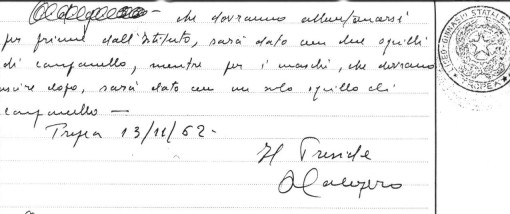 che dovranno allontanarsi
per prime dall'Istituto, sarà dato con due squilli
di campanello, mentre per i maschi, che dovranno
uscire dopo, sarà dato con un solo squillo di
campanello —
Tropea 13/11/62-
Il Preside
LICEO-GINNASIO STATALE
TROPEA